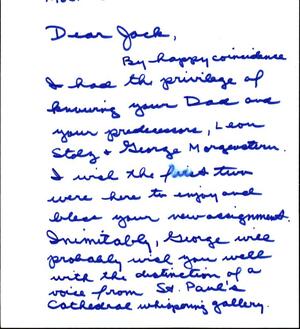 Dear Jack,
By happy coincidence
I had the privilege of
knowing your Dad and
your predecessors, Leon
Stolz & George Morgenstern.
I wish the first two
were here to enjoy and
bless your new assignment.
Inimitably, George will
probably wish you well
with the distinction of a
voice from St. Paul's
Cathedral whispering gallery.